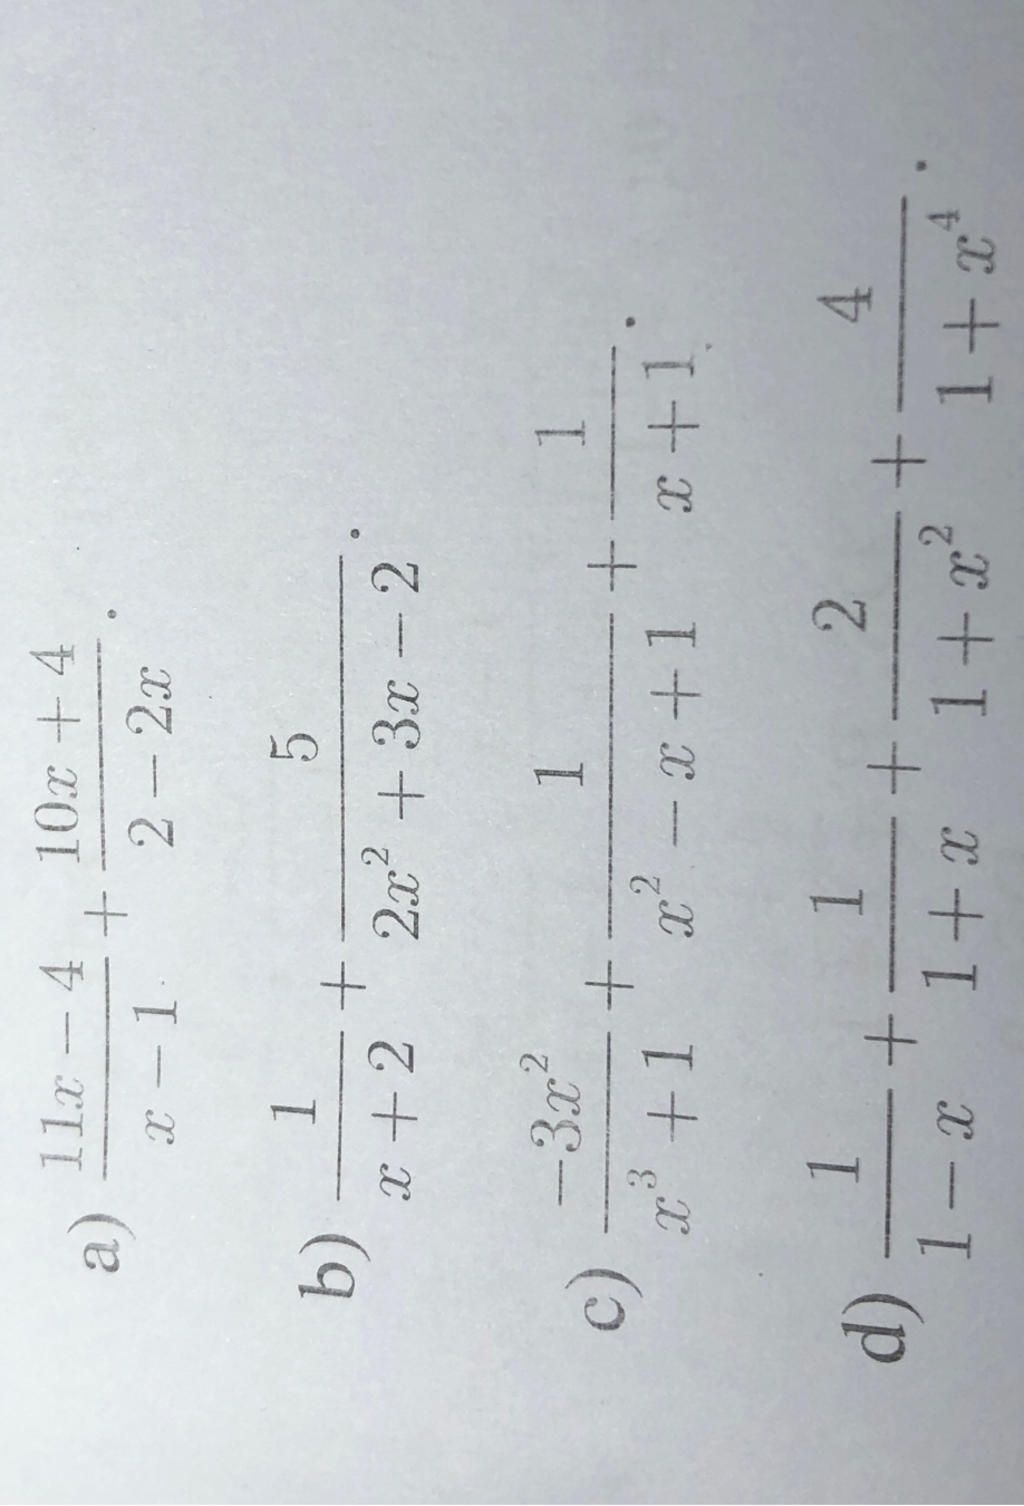 a) \frac{11x - 4}{x - 1} + \frac{10x + 4}{2 - 2x}.
b) \frac{1}{x + 2} + \frac{5}{2x^2 + 3x - 2}.
c) \frac{-3x^2}{x^3 + 1} + \frac{1}{x^2 - x + 1} + \frac{1}{x + 1}.
d) \frac{1}{1 - x} + \frac{1}{1 + x} + \frac{2}{1 + x^2} + \frac{4}{1 + x^4}.